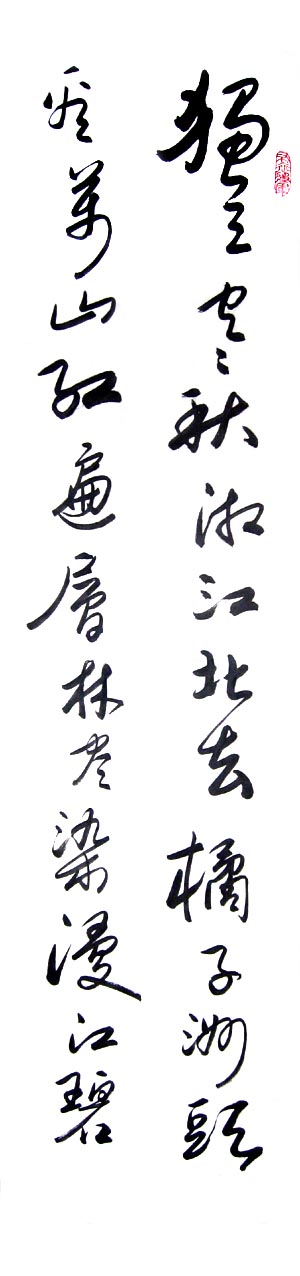 獨立寒秋湘江北去橘子洲頭
看萬山红遍層林尽染漫江碧